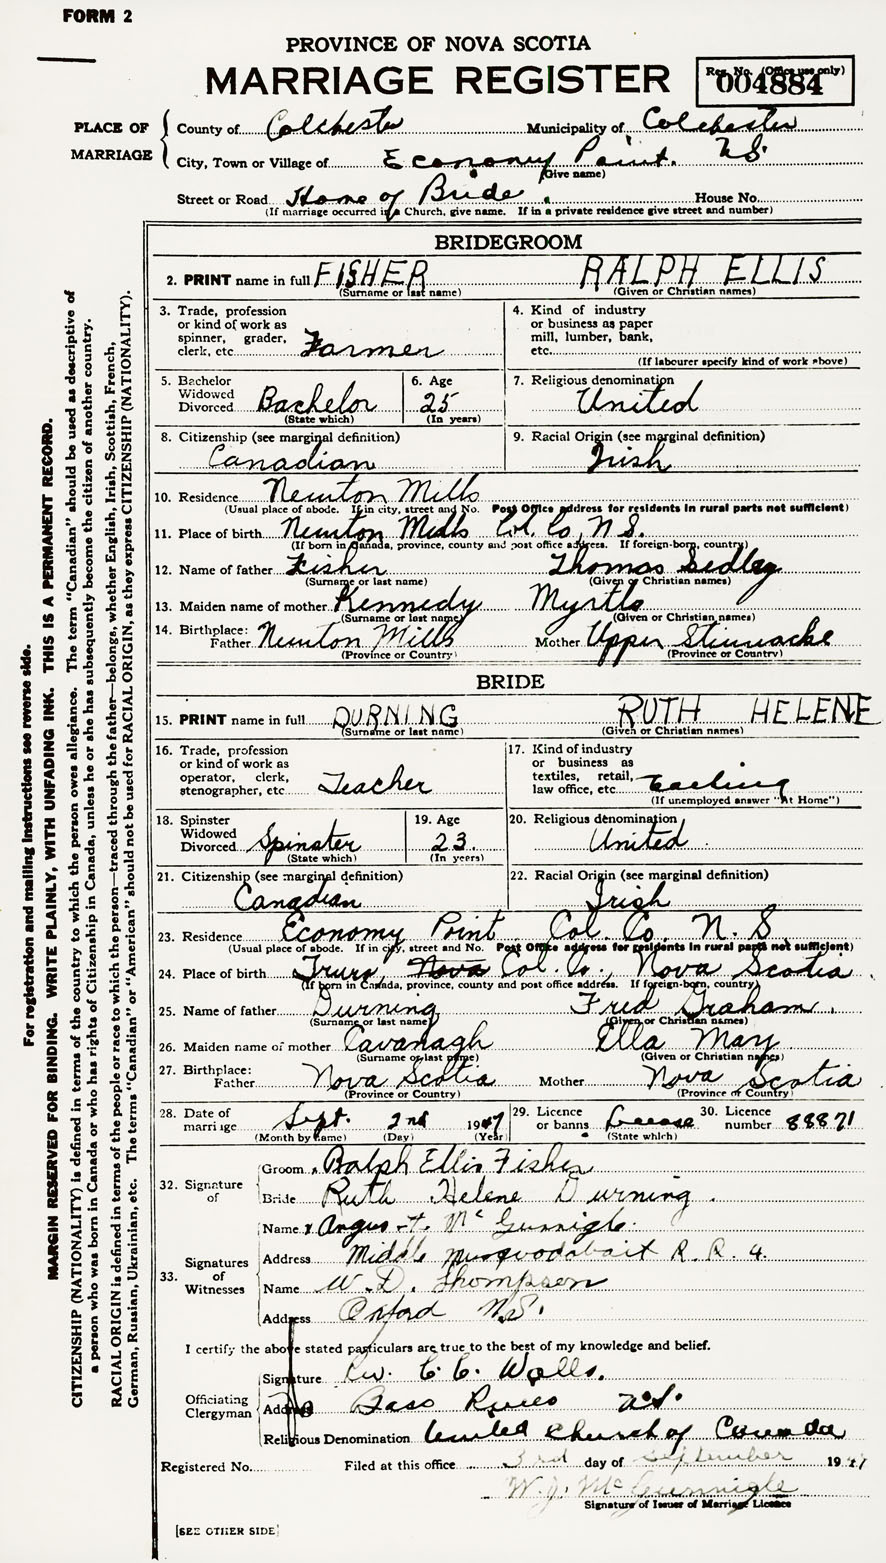 FORM 2
PROVINCE OF NOVA SCOTIA
MARRIAGE REGISTER
Reg. No. (Office use only)
004884
PLACE OF MARRIAGE
County of Colchester Municipality of Colchester
City, Town or Village of Economy Point. N.S.
(Give name)
Street or Road Home of Bride. House No.
(If marriage occurred in a Church, give name. If in a private residence give street and number)
BRIDEGROOM
2. PRINT name in full FISHER RALPH ELLIS
(Surname or last name) (Given or Christian names)
3. Trade, profession or kind of work as spinner, grader, clerk, etc. Farmer
4. Kind of industry or business as paper mill, lumber, bank, etc.
(If labourer specify kind of work above)
5. Bachelor Widowed Divorced Bachelor
(State which)
6. Age 25
(In years)
7. Religious denomination United
8. Citizenship (see marginal definition) Canadian
9. Racial Origin (see marginal definition) Irish
10. Residence Newton Mills
(Usual place of abode. If in city, street and No. Post Office address for residents in rural parts not sufficient)
11. Place of birth Newton Mills Col. Co, N.S.
(If born in Canada, province, county and post office address. If foreign-born, country)
12. Name of father Fisher Thomas Sedley
(Surname or last name) (Given or Christian names)
13. Maiden name of mother Kennedy Myrtle
(Surname or last name) (Given or Christian names)
14. Birthplace: Father Newton Mills Mother Upper Stewiacke
(Province or Country) (Province or Country)
BRIDE
15. PRINT name in full DURNING RUTH HELENE
(Surname or last name) (Given or Christian names)
16. Trade, profession or kind of work as operator, clerk, stenographer, etc. Teacher
17. Kind of industry or business as textiles, retail, law office, etc.
(If unemployed answer "At Home")
18. Spinster Widowed Divorced Spinster
(State which)
19. Age 23.
(In years)
20. Religious denomination United
21. Citizenship (see marginal definition) Canadian
22. Racial Origin (see marginal definition) Irish
23. Residence Economy Point Col. Co. N. S.
(Usual place of abode. If in city, street and No. Post Office address for residents in rural parts not sufficient)
24. Place of birth Truro, Nova Col. Co., Nova Scotia.
(If born in Canada, province, county and post office address. If foreign-born, country)
25. Name of father Durning Fred Graham.
(Surname or last name) (Given or Christian names)
26. Maiden name of mother Cavanagh Ella May
(Surname or last name) (Given or Christian names)
27. Birthplace: Father Nova Scotia Mother Nova Scotia
(Province or Country) (Province or Country)
28. Date of marriage Sept. 2nd 1947
(Month by name) (Day) (Year)
29. Licence or banns License
(State which)
30. Licence number 88871
32. Signature of
Groom Ralph Ellis Fisher
Bride Ruth Helene Durning.
33. Signatures of Witnesses
Name x Angus H. McGunnigle.
Address Middle Musquodoboit R. R. 4.
Name W. D. Thompson
Address Oxford N.S.
I certify the above stated particulars are true to the best of my knowledge and belief.
Officiating Clergyman
Signature Rev. C. C. Walls.
Address Bass River N.S.
Religious Denomination United Church of Canada
Registered No. Filed at this office 3rd day of September 1947
W. J. McGunnigle
Signature of Issuer of Marriage Licence
[SEE OTHER SIDE]
For registration and mailing instructions see reverse side.
MARGIN RESERVED FOR BINDING. WRITE PLAINLY, WITH UNFADING INK. THIS IS A PERMANENT RECORD.
CITIZENSHIP (NATIONALITY) is defined in terms of the country to which the person owes allegiance. The term "Canadian" should be used as descriptive of
a person who was born in Canada or who has rights of Citizenship in Canada, unless he or she has subsequently become the citizen of another country.
RACIAL ORIGIN is defined in terms of the people or race to which the person—traced through the father—belongs, whether English, Irish, Scottish, French,
German, Russian, Ukrainian, etc. The terms "Canadian" or "American" should not be used for RACIAL ORIGIN, as they express CITIZENSHIP (NATIONALITY).